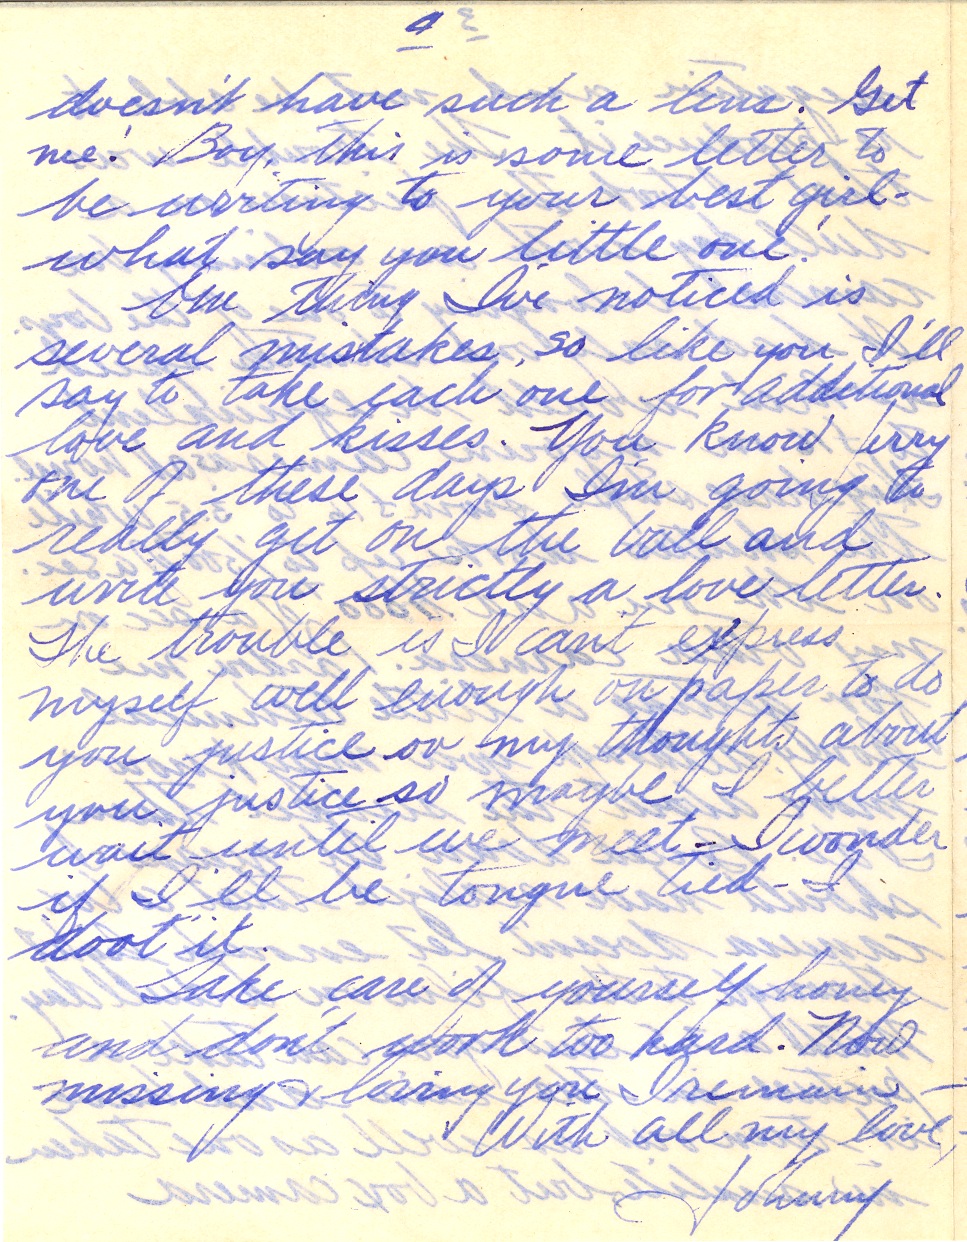 4
doesn't have such a lens. Get
me! Boy, this is some letter to
be writing to your best girl-
what say you little one!
One thing I've noticed is
several mistakes, so like you I'll
say to take each one for additional
love and kisses. You know Jerry
one of these days I'm going to
really get on the ball and
write you strictly a love letter.
The trouble is I can't express
myself well enough on paper to do
you justice or my thoughts about
you justice so maybe I better
wait until we meet - I wonder
if I'll be tongue tied - I
"doot" it.
Take care of yourself honey
and don't work too hard. Now
missing & loving you I remain -
With all my love,
Johnny